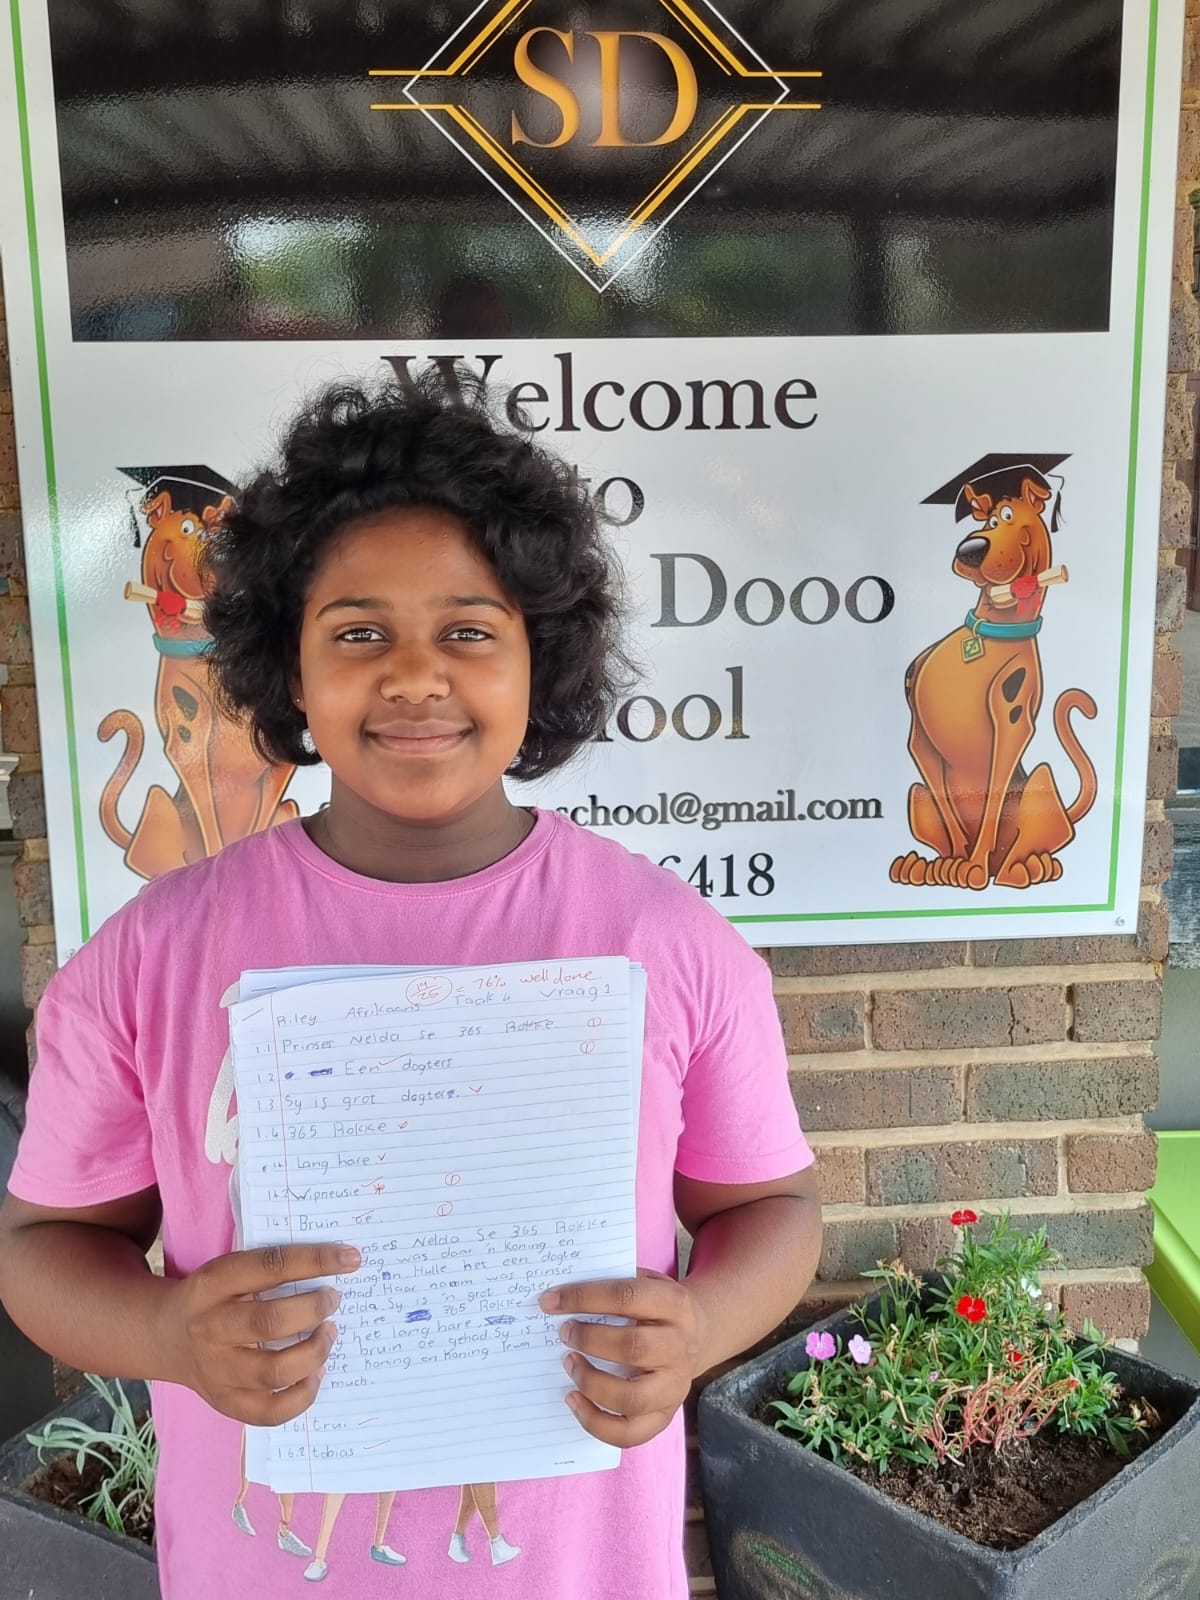 SD
Welcome
to
Dooo
ool
school@gmail.com
6418
19/25 = 76% well done
Riley Afrikaans Taak 4 Vraag 1
1.1 Prinses Nelda Se 365 Rokke 1
1.2 Een dogters 1
1.3 Sy is grot dogters.
1.4 365 Rokke
Lang hare
1.4.2 Wipneusie 1
1.4.3 Bruin oe. 1
nses Nelda Se 365 Rokke
dag was daar 'n Koning en
Koningin Hulle het een dogter
gehad. Haar naam was prinses
Nelda. Sy is 'n grot dogter
y het 365 Rokke
y het lang hare,
en bruin oe gehad. Sy is
die Koning en Koning
much.
1.6.1 trui
1.6.2 tobias